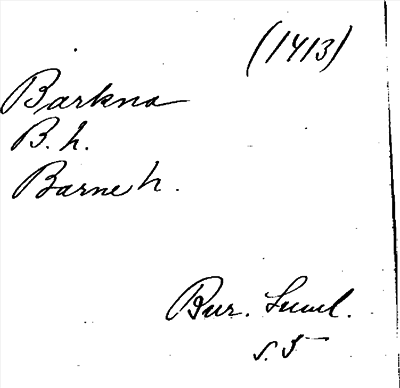 (1413)
Barkna
B. h.
Barne h.
Bur. Lund.
s. 5